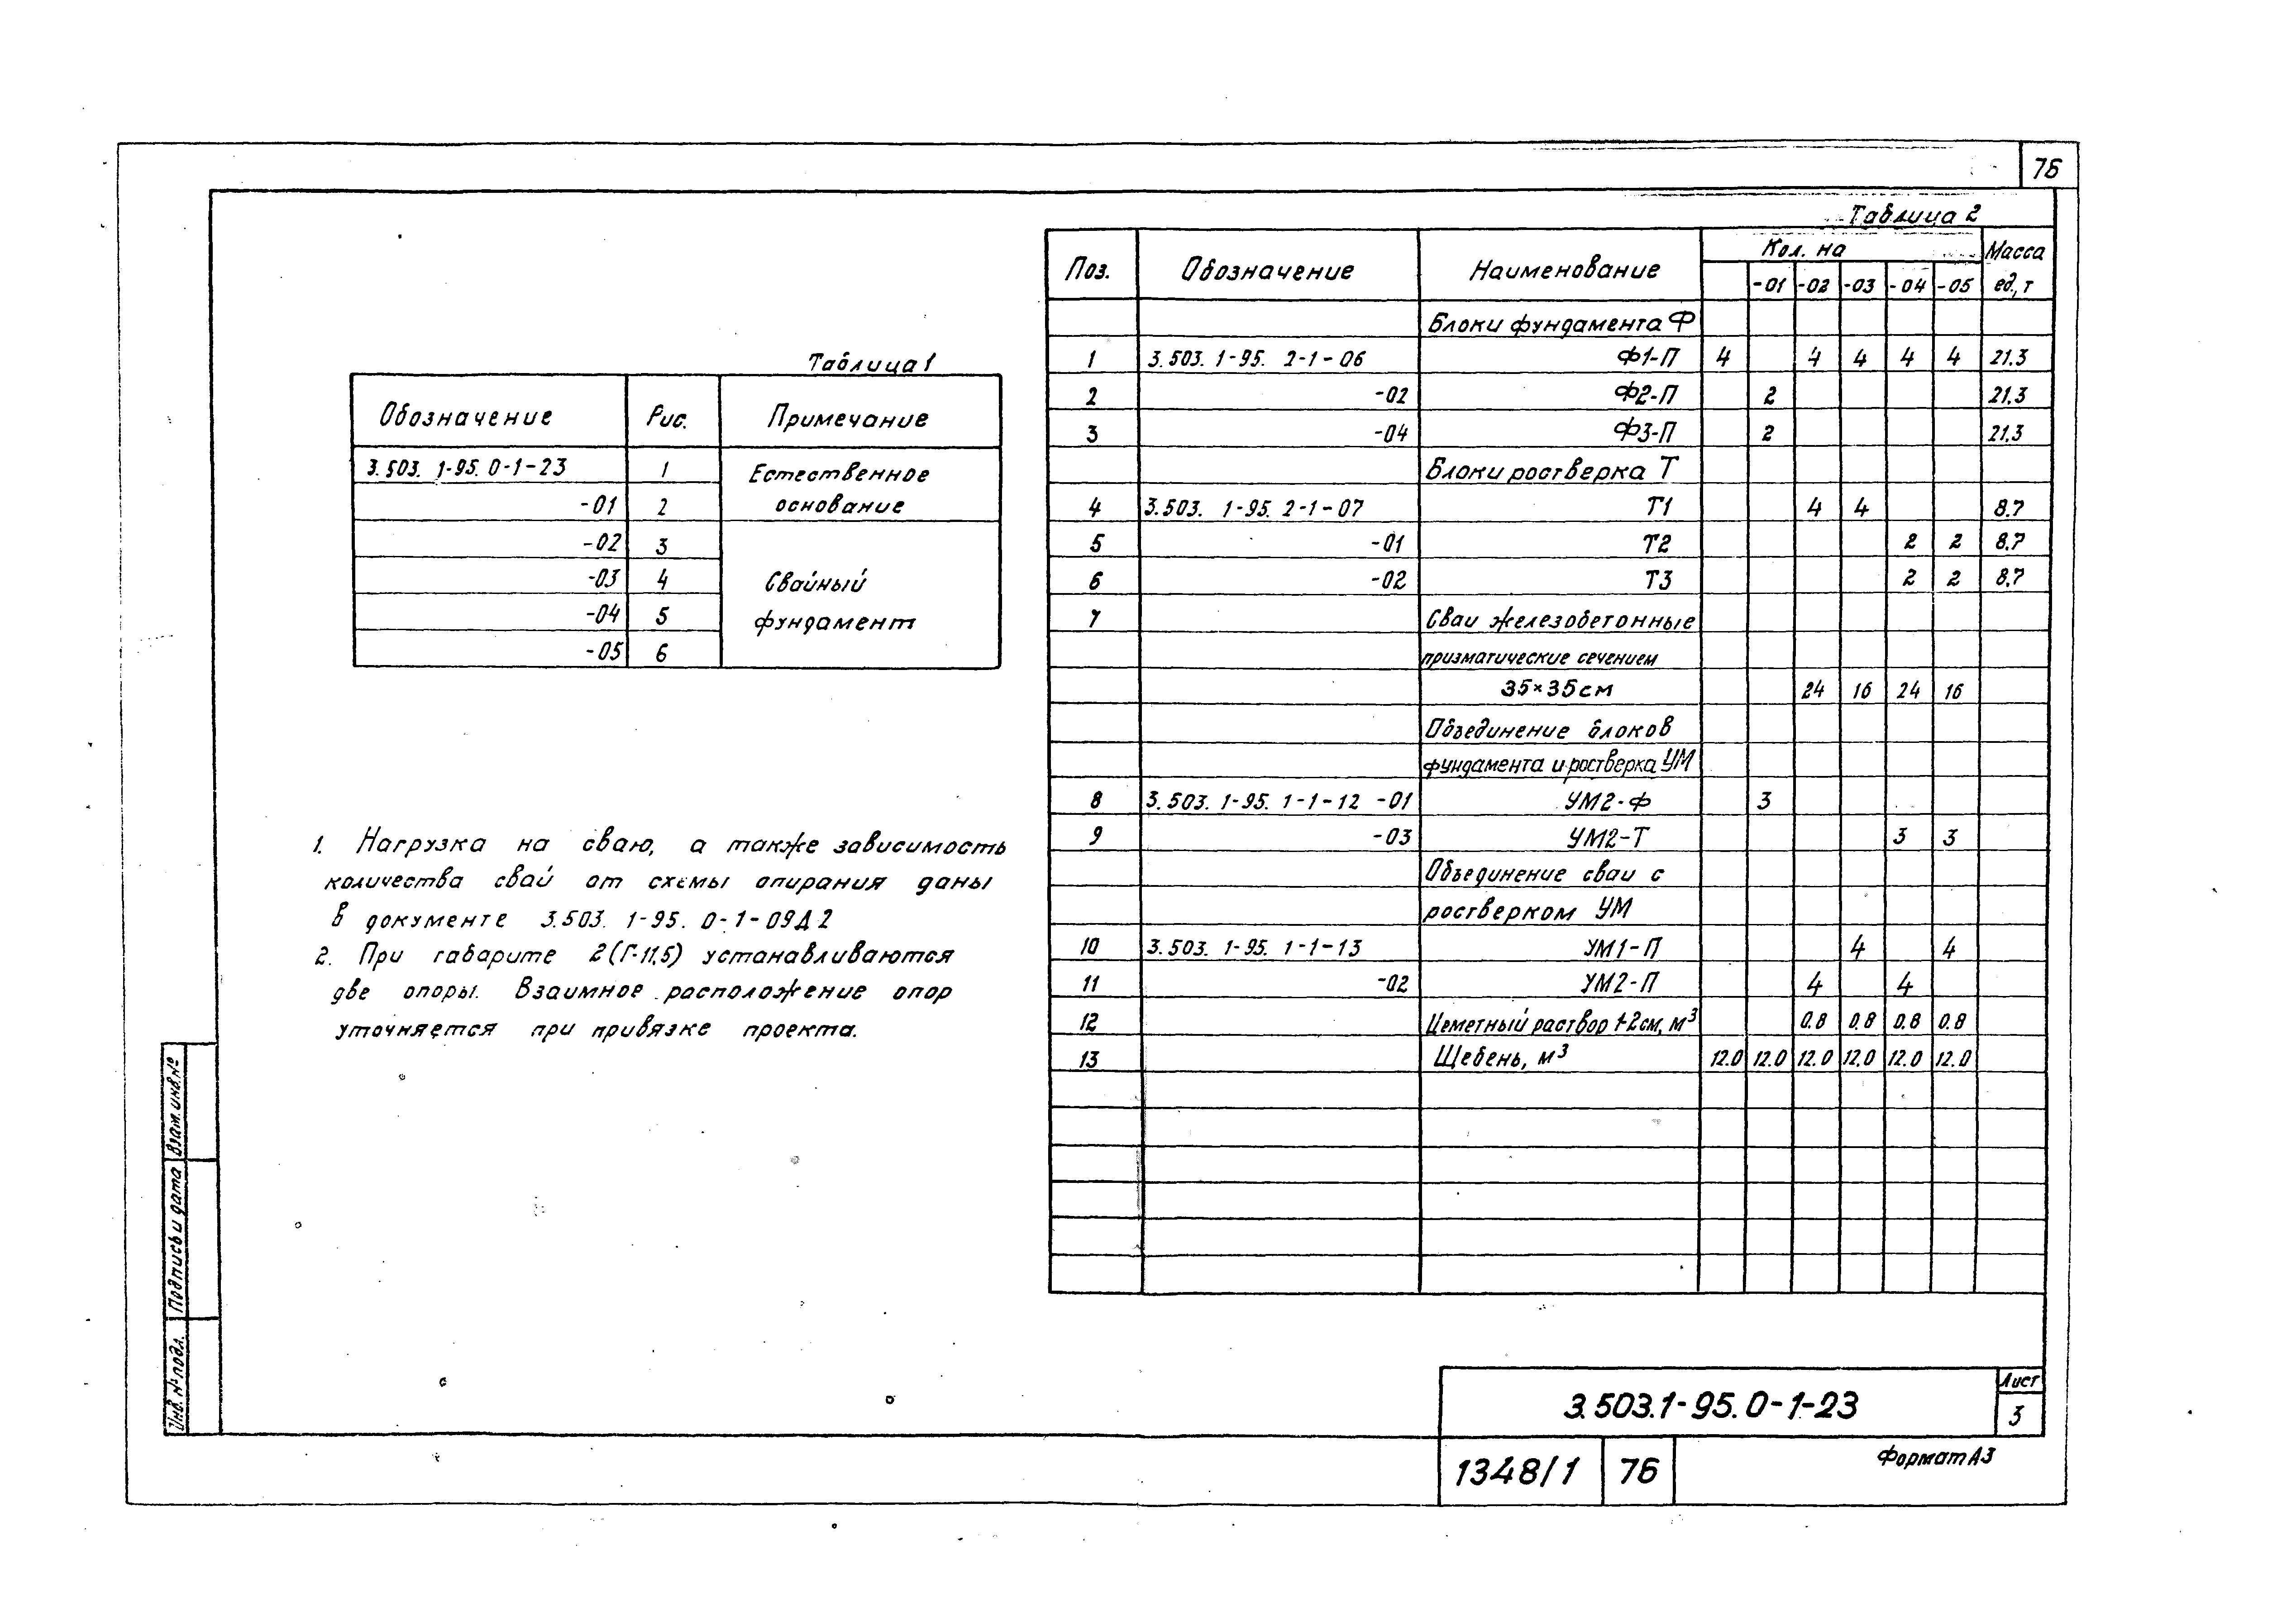 76
Таблица 1
Обозначение Рис. Примечание
3.503. 1-95. 0-1-23 1 Естественное
-01 2 основание
-02 3
-03 4 Свайный
-04 5 фундамент
-05 6
1. Нагрузка на сваю, а также зависимость
количества свай от схемы опирания даны
в документе 3.503. 1-95. 0-1-09Д2
2. При габарите 2(Г-11,5) устанавливаются
две опоры. Взаимное расположение опор
уточняется при привязке проекта.
Таблица 2
Поз. Обозначение Наименование Кол. на Масса
-01 -02 -03 -04 -05 ед., т
Блоки фундамента Ф
1 3.503. 1-95. 2-1-06 Ф1-П 4 4 4 4 4 21.3
2 -02 Ф2-П 2 21.3
3 -04 Ф3-П 2 21.3
Блоки ростверка Т
4 3.503. 1-95. 2-1-07 Т1 4 4 8.7
5 -01 Т2 2 2 8.7
6 -02 Т3 2 2 8.7
7 Сваи железобетонные
призматические сечением
35×35см 24 16 24 16
Объединение блоков
фундамента и ростверка УМ
8 3.503. 1-95. 1-1-12 -01 УМ2-Ф 3
9 -03 УМ2-Т 3 3
Объединение сваи с
ростверком УМ
10 3.503. 1-95. 1-1-13 УМ1-П 4 4
11 -02 УМ2-П 4 4
12 Цеметный раствор 1-2см, м³ 0.8 0.8 0.8 0.8
13 Щебень, м³ 12.0 12.0 12.0 12.0 12.0 12.0
Взам. инв. №
Подпись и дата
Инв. № подл.
3.503.1-95.0-1-23
Лист
3
1348/1 76
Формат А3